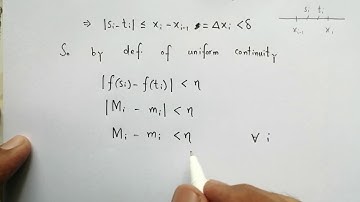 ⇒ |sᵢ - tᵢ| ≤ xᵢ - xᵢ₋₁ = Δxᵢ < δ
sᵢ tᵢ
xᵢ₋₁ xᵢ
So by def. of uniform continuity
|f(sᵢ) - f(tᵢ)| < η
|Mᵢ - mᵢ| < η
Mᵢ - mᵢ < η ∀ i